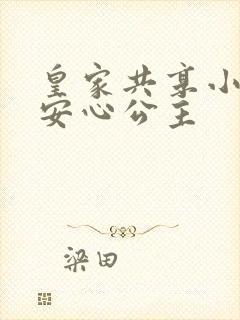 皇家共享小
安心公主
梁田